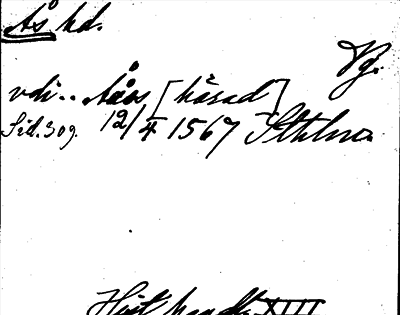 Ås hd.
Vg.
vdi.. Åås [härad]
Sid. 309. 12/4 1567 Sthlm.
Hist. handl. XIII